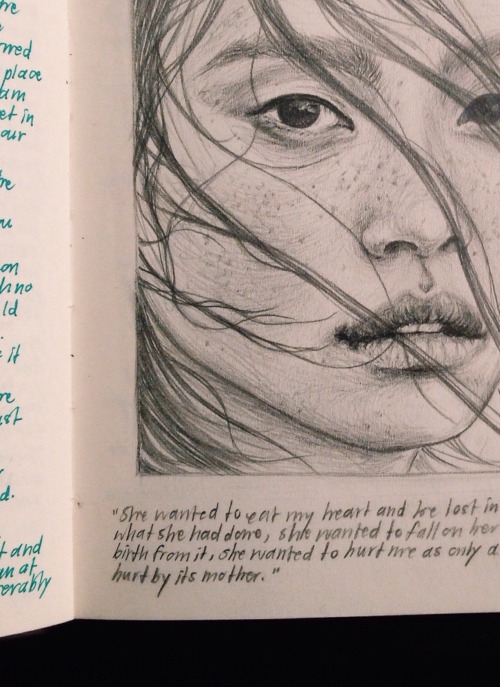 place
am
et in
our
on
ld
it
d.
t and
at
erably
"She wanted to eat my heart and be lost in
what she had done, she wanted to fall on her
birth from it, she wanted to hurt me as only a
hurt by its mother."